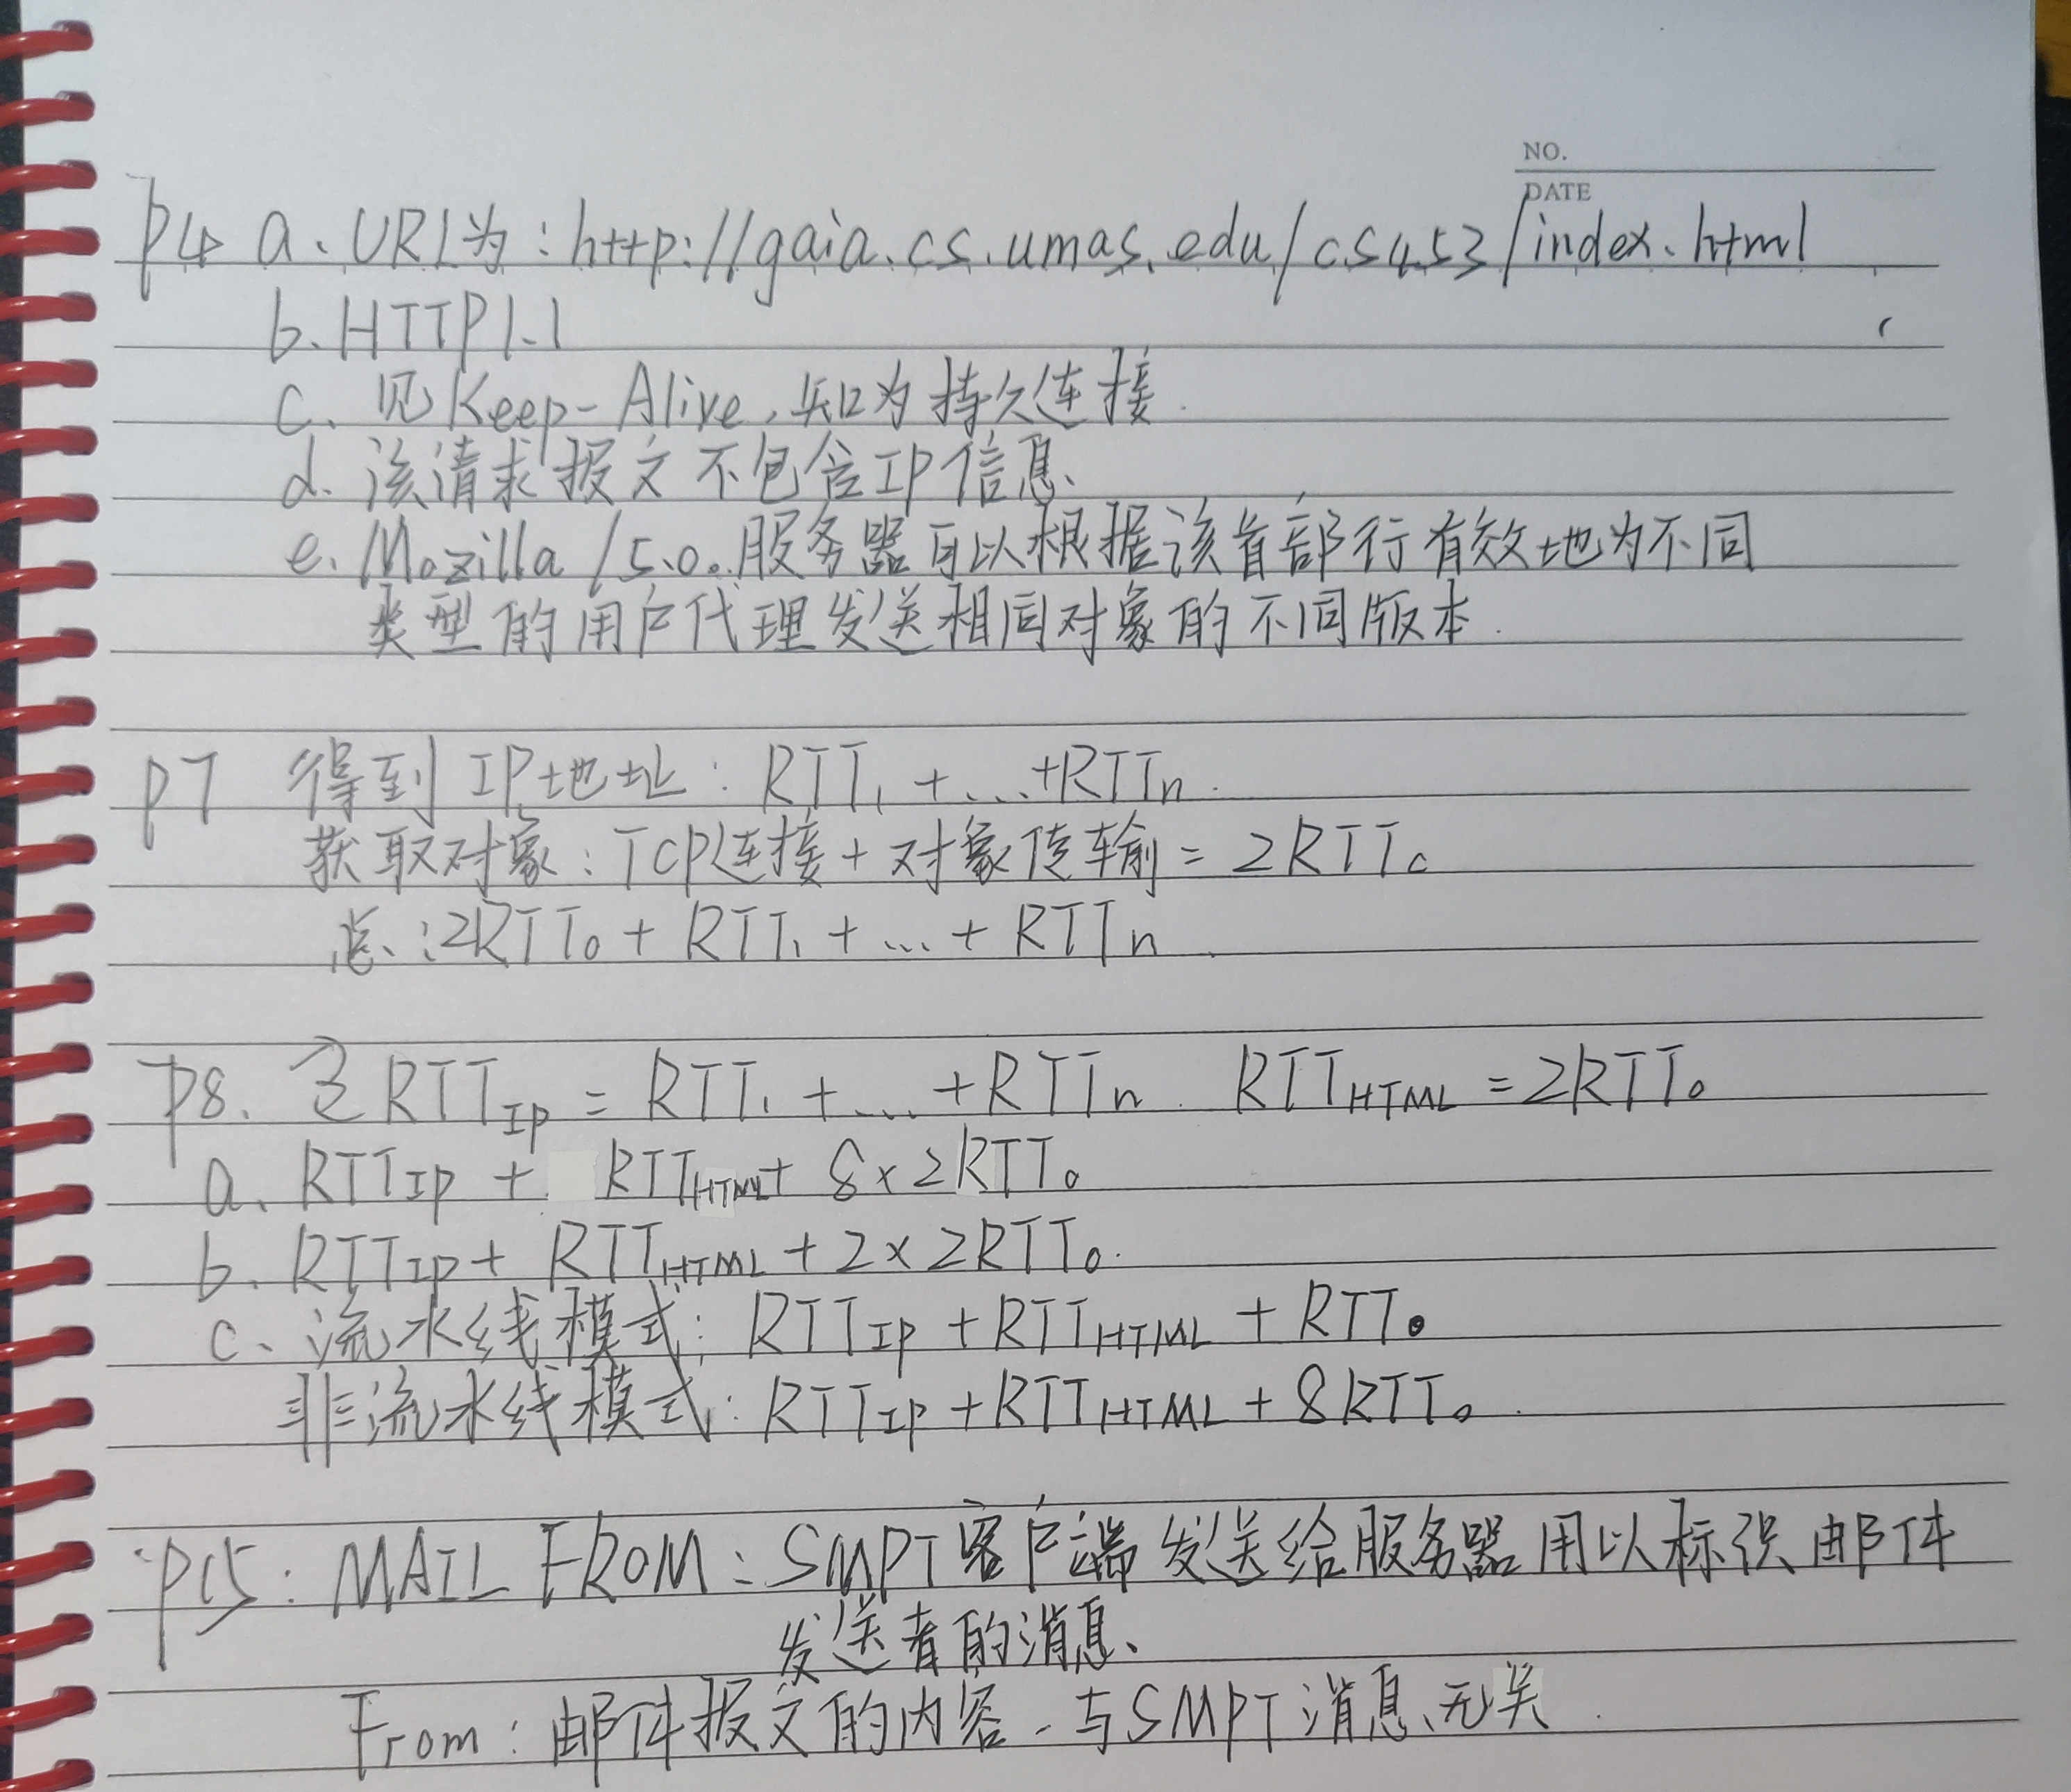 NO.
DATE
P4 a. URL为: http://gaia.cs.umas.edu/cs453/index.html
b. HTTP1.1
c. 见Keep-Alive, 知为持久连接.
d. 该请求报文不包含IP信息、
e. Mozilla/5.0。服务器可以根据该首部行有效地为不同
类型的用户代理发送相同对象的不同版本.
P7 得到IP地址: RTT₁ + ... + RTTn.
获取对象: TCP连接 + 对象传输 = 2RTT₀
总: 2RTT₀ + RTT₁ + ... + RTTn.
P8. 令RTT_IP = RTT₁ + ... + RTTn. RTT_HTML = 2RTT₀
a. RTT_IP + RTT_HTML + 8×2RTT₀
b. RTT_IP + RTT_HTML + 2×2RTT₀.
c. 流水线模式: RTT_IP + RTT_HTML + RTT₀
非流水线模式: RTT_IP + RTT_HTML + 8RTT₀.
P15: MAIL FROM: SMPT客户端发送给服务器用以标识邮件
发送者的消息、
From: 邮件报文的内容, 与SMPT消息无关.